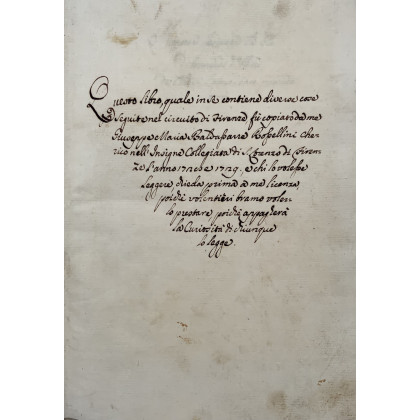 Questo libro, quale in se contiene diverse cose
seguite nel circuito di Firenze fù copiato da me
Giuseppe Maria Baldassarre Rossellini che-
rico nell'Insigne Collegiata di S. Lorenzo di Firen-
ze l'anno 1729. e chi lo volesse
leggere chieda prima a me licenza,
poiche volentieri bramo voler-
lo prestare poiche appagherà
la Curiosità di chiunque
lo legge.